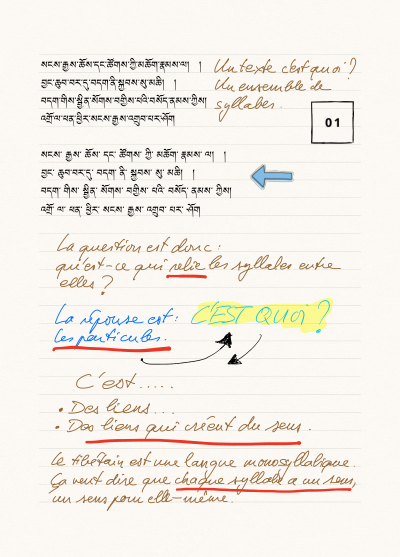 སངས་རྒྱས་ཆོས་དང་ཚོགས་ཀྱི་མཆོག་རྣམས་ལ།  །
བྱང་ཆུབ་བར་དུ་བདག་ནི་སྐྱབས་སུ་མཆི།  །
བདག་གིས་སྦྱིན་སོགས་བགྱིས་པའི་བསོད་ནམས་ཀྱིས།
འགྲོ་ལ་ཕན་ཕྱིར་སངས་རྒྱས་འགྲུབ་པར་ཤོག
Un texte c'est quoi ?
Un ensemble de
syllabes.
01
སངས་ རྒྱས་ ཆོས་ དང་ ཚོགས་ ཀྱི་ མཆོག་ རྣམས་ ལ།  །
བྱང་ ཆུབ་བར་དུ་ བདག་ ནི་ སྐྱབས་ སུ་ མཆི།  །
བདག་ གིས་ སྦྱིན་ སོགས་ བགྱིས་ པའི་ བསོད་ ནམས་ ཀྱིས།
འགྲོ་ ལ་ ཕན་ ཕྱིར་ སངས་ རྒྱས་ འགྲུབ་ པར་ ཤོག
La question est donc :
qu'est-ce qui relie les syllabes entre
elles ?
La réponse est : C'EST QUOI ?
les particules.
C'est.....
• Des liens...
• Des liens qui créent du sens.
Le tibétain est une langue monosyllabique.
Ça veut dire que chaque syllabe a un sens,
un sens pour elle-même.